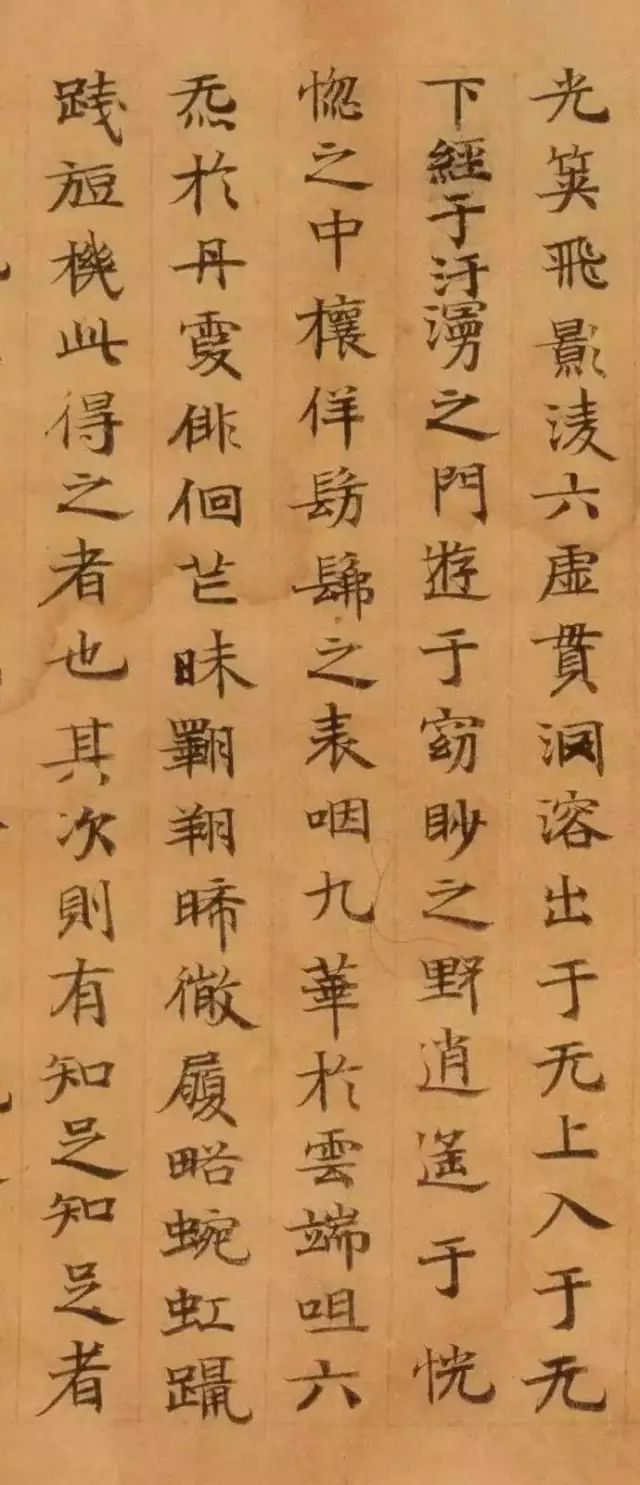 光策飛影淩六虛貫洞溶出于无上入于无
下經于汗漫之門遊于窈眇之野逍遙于恍
惚之中穰佯髣髴之表咽九華於雲端咀六
炁於丹霞俳佪芒昧翺翔晞㣲履略蜿虹躡
踐旋機此得之者也其次則有知足知足者